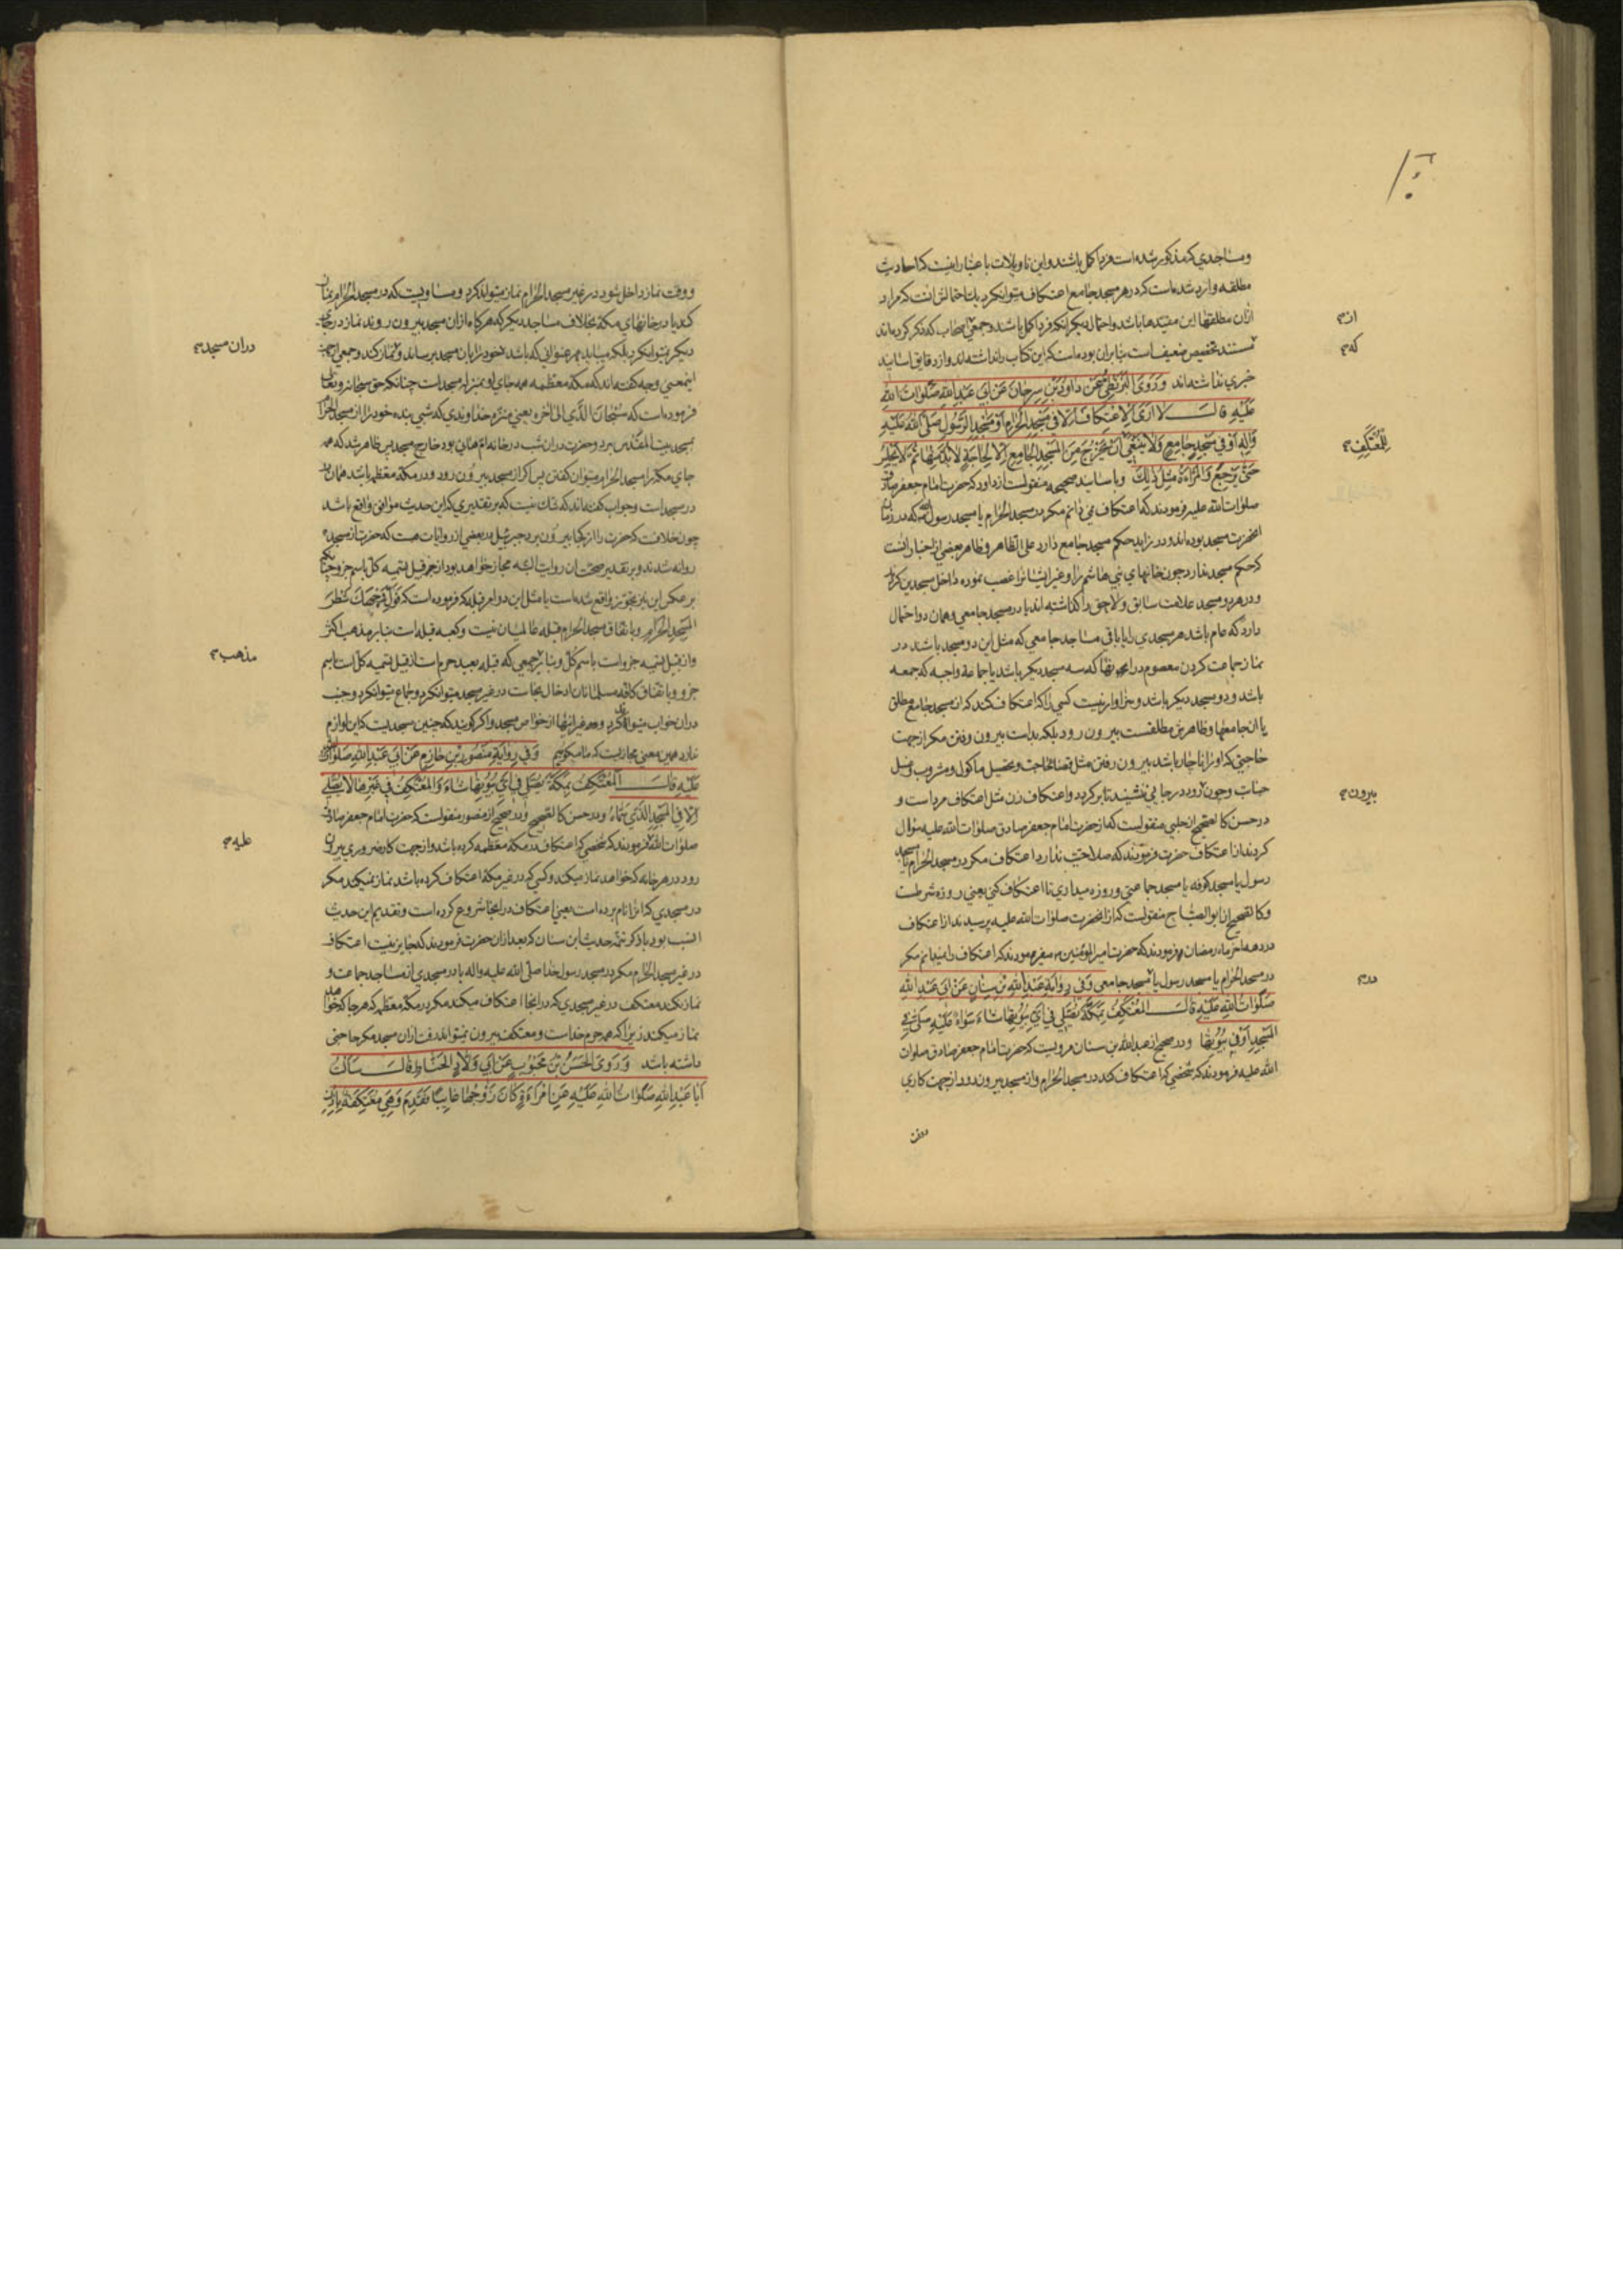 ومساجدي كه مذكور شده است فرد اكمل باشند واين تاويلات باعتبار اينست كه احاديث
مطلقه وارد شده است كه در هر مسجد جامع اعتكاف ميتوان كرد يك احتمالش انست كه مراد
ازان مطلقها اين مقيدها باشد واحتمال ديگر انكه فرد اكمل باشند وجمعي اصحاب كه ذكر كرده اند
مستند تخصيص ضعيف است بنابران بوده است كه اين كتاب را نداشته اند واز دقايق اسانيد
خبري نداشته اند وَرَوَى الْبَزَنْطِيُّ عَنْ دَاوُدَ بْنِ سِرْحَانَ عَنْ أَبِي عَبْدِ اللهِ صَلَوَاتُ اللهِ
عَلَيْهِ قَالَ لَا أَرَى الِاعْتِكَافَ إِلَّا فِي مَسْجِدِ الْحَرَامِ أَوْ مَسْجِدِ الرَّسُولِ صَلَّى اللهُ عَلَيْهِ
وَآلِهِ أَوْ فِي مَسْجِدٍ جَامِعٍ وَلَا يَنْبَغِي أَنْ يَخْرُجَ مِنَ الْمَسْجِدِ الْجَامِعِ إِلَّا لِحَاجَةٍ لَابُدَّ مِنْهَا ثُمَّ لَا يَجْلِسُ
لِلْمُعْتَكِفِ
حَتَّى يَرْجِعَ وَالْمَرْأَةُ مِثْلُ ذَلِكَ وباسانيد صحيحه منقولست از داود كه حضرت امام جعفر صادق
صلوات الله عليه فرمودند كه اعتكاف نمي دانم مگر در مسجد الحرام يا مسجد رسول كه در زمان
انحضرت مسجد بوده
كه حكم مسجد ندارد چون خانهاي بني هاشم را وغير ايشانرا غصب نموده داخل مسجدين كرده اند
ودر هر دو مسجد علامت سابق ولاحق را گذاشته اند يا در مسجد جامعي وهمان دو احتمال
دارد كه عام باشد هر مسجدي را يا باقي مساجد جامعي كه مثل اين دو مسجد باشند در
نماز جماعت كردن معصوم در انجا
باشد ودو مسجد ديگر باشد وسزاوار نيست كسي را كه اعتكاف كند كه از مسجد جامع مطلق
يا ان جامعها وظاهرش مطلقست بيرون رود بلكه بد است بيرون رفتن مگر از جهت
حاجتي كه او را ناچار باشد بيرون رفتن مثل قضاء حاجت وتحصيل ماكول ومشروب وغسل
جنابت وچون رود در جايي ننشيند تا برگردد واعتكاف زن مثل اعتكاف مرد است و
بيرون
در حسن كالصحيح از حلبي منقولست كه از حضرت امام جعفر صادق صلوات الله عليه سؤال
كردند از اعتكاف حضرت فرمودند كه صلاحيت ندارد اعتكاف مگر در مسجد الحرام يا مسجد
رسول يا مسجد كوفه يا مسجد جماعتي وروزه ميداري تا اعتكاف كني يعني روزه شرطست
وكالصحيح از ابو الصباح منقولست كه از انحضرت صلوات الله عليه پرسيدند از اعتكاف
در دهه اخر ماه رمضان فرمودند كه حضرت امير المؤمنين ميفرمودند كه اعتكاف را نميدانم مگر
در مسجد الحرام يا مسجد رسول يا مسجد جامعي وَفِي رِوَايَةِ عَبْدِ اللهِ بْنِ سِنَانٍ عَنْ أَبِي عَبْدِ اللهِ
صَلَوَاتُ اللهِ عَلَيْهِ قَالَ الْمُعْتَكِفُ بِمَكَّةَ يُصَلِّي فِي أَيِّ بُيُوتِهَا شَاءَ سَوَاءٌ عَلَيْهِ صَلَّى فِي
الْمَسْجِدِ أَوْ فِي بُيُوتِهَا ودر صحيح از عبد الله بن سنان مرويست كه حضرت امام جعفر صادق صلوات
الله عليه فرمودند كه شخصي كه اعتكاف كند در مسجد الحرام واز مسجد بيرون رود از جهت كاري
ووقت نماز داخل شود در غير مسجد الحرام نماز ميتواند كرد ومساويست كه در مسجد الحرام نماز
كند يا در خانهاي مكه بخلاف مساجد ديگر كه هر گاه ازان مسجد بيرون روند نماز در جاي
ديگر نميتوان كرد بلكه ميبايد بهر عنواني كه باشد خود را بان مسجد رساند ونماز كند وجمعي از جهة
در ان مسجد
اينمعني وجه گفته اند كه مكه معظمه همه جاي او بمنزله مسجد است چنانكه حق سبحانه وتعالى
فرموده است كه سُبْحَانَ الَّذِي الى اخره يعني منزه خداوندي كه شبي بنده خود را از مسجد الحرام
بمسجد بيت المقدس برد وحضرت دران شب در خانه ام هاني بود خارج مسجد پس ظاهر شد كه همه
جاي مكه را مسجد الحرام ميتوان گفتن پس اگر از مسجد بيرون رود ودر مكه معظمه باشد همان
در مسجد است وجواب گفته اند كه شك نيست كه بر تقديري كه اين حديث موافق واقع باشد
چون خلافست كه حضرت را از كجا بيرون برد جبرئيل در بعضي از روايات هست كه حضرت از مسجد
روانه شدند وبر تقدير صحت ان روايت البته مجاز خواهد بود از قبيل تسميه كل باسم جزو
بر عكس اين نيز تجوز واقع شده است يا مثل اين در امر قبله كه فرموده است كه فَوَلِّ وَجْهَكَ شَطْرَ
الْمَسْجِدِ الْحَرَامِ وباتفاق مسجد الحرام قبله عالميان نيست وكعبه قبله است بنابر مذهب اكثر
واز قبيل تسميه جزو است باسم كل وبنابر جمعي كه قبله بعيد حرم است از قبيل تسميه كل است باسم
مذهب
جزو وباتفاق كافه مسلمانان ادخال نجاست در غير مسجد ميتوان كرد وجماع ميتوان كرد وجنب
دران خواب ميتواند كرد وهمه غير اينها از خواص مسجد واگر گويند كه چنين مسجديست كه اين لوازم
ندارد همين معني مجازيست كه ما ميگوييم وَفِي رِوَايَةِ مَنْصُورِ بْنِ حَازِمٍ عَنْ أَبِي عَبْدِ اللهِ صَلَوَاتُ اللهِ
عَلَيْهِ قَالَ الْمُعْتَكِفُ بِمَكَّةَ يُصَلِّي فِي أَيِّ بُيُوتِهَا شَاءَ وَالْمُعْتَكِفُ فِي غَيْرِهَا لَا يُصَلِّي
إِلَّا فِي الْمَسْجِدِ الَّذِي سَمَّاهُ ودر حسن كالصحيح ودر صحيح از منصور منقولست كه حضرت امام جعفر صادق
صلوات الله فرمودند كه شخصي كه اعتكاف در مكه معظمه كرده باشد واز جهت كار ضروري بيرون
عليه
رود در هر خانه كه خواهد نماز ميكند وكسي كه در غير مكه اعتكاف كرده باشد نماز نميكند مگر
در مسجدي كه انرا نام برده است يعني اعتكاف در انجا شروع كرده است وتقديم اين حديث
انسب بود با ذكر تتمه حديث ابن سنان كه بعد ازان حضرت فرمودند كه جايز نيست اعتكاف
در غير مسجد الحرام مگر در مسجد رسول خدا صلى الله عليه واله يا در مسجدي از مساجد جماعت و
نماز نكند معتكف در غير مسجدي كه در انجا اعتكاف ميكند مگر در مكه معظمه كه هر جا كه خواهد
نماز ميكند زيرا كه همه حرم خداست ومعتكف بيرون نميتواند رفت ازان مسجد مگر حاجتي
داشته باشد وَرَوَى الْحَسَنُ بْنُ مَحْبُوبٍ عَنْ أَبِي وَلَّادٍ الْحَنَّاطِ قَالَ سَأَلْتُ
أَبَا عَبْدِ اللهِ صَلَوَاتُ اللهِ عَلَيْهِ عَنِ امْرَأَةٍ كَانَ زَوْجُهَا غَائِبًا فَقَدِمَ وَهِيَ مُعْتَكِفَةٌ بِإِذْنِ